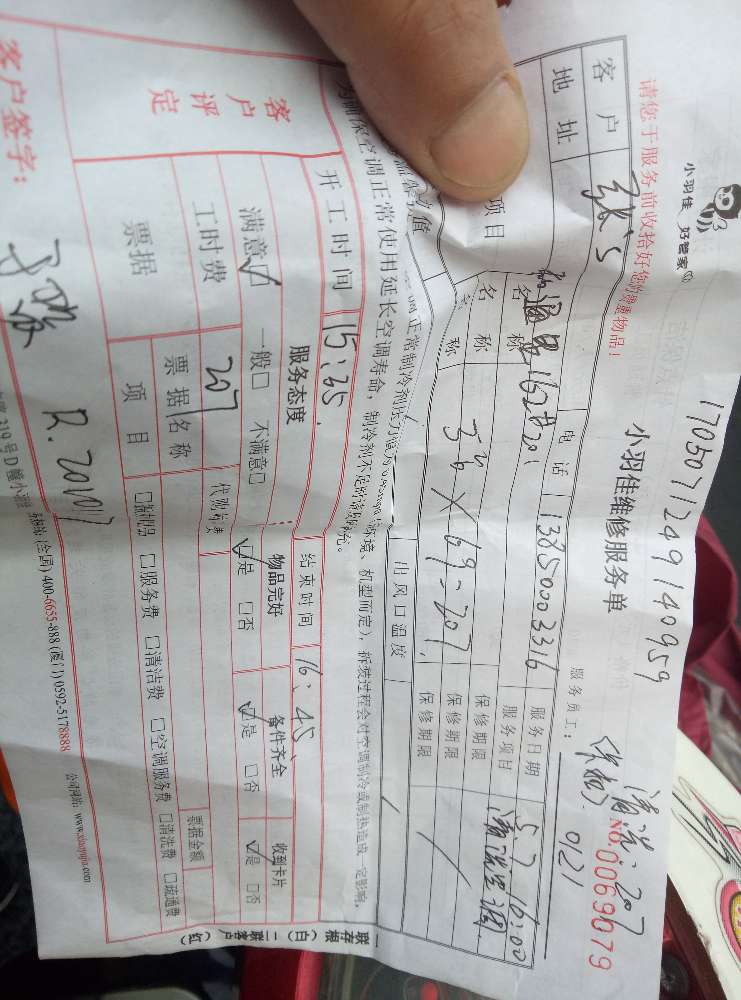 170507124914095９
小羽佳 好管家
小羽佳维修服务单
清洗:207
NO.0069079
请您于服务前收拾好您的贵重物品!
服务员工:
0121
客户
张'S
电话
13850003316
服务日期
5.7 16:00
地址
162#201
服务项目
清洗空调
项目
名称
3台×69=207
保修期限
名称
保修期限
名称
保修期限
出风口温度
为确保空调正常使用延长空调寿命,制冷剂不足的请及时补充。
开工时间
15:35
结束时间
16:45
客户评定
服务态度
物品完好
备件齐全
收到卡片
满意☑ 一般□ 不满意□
☑是 □否
☑是 □否
☑是 □否
工时费
207
票据
票据名称
票据金额
项目
□服务费 □清洁费 □空调服务费 □清洗费 □疏通费
客户签字:
R.201017
(全国) 400-6655-888 (厦门) 0592-5178888
公司网站: www.xiaoyujia.com
一联存根(白) 二联客户(红)